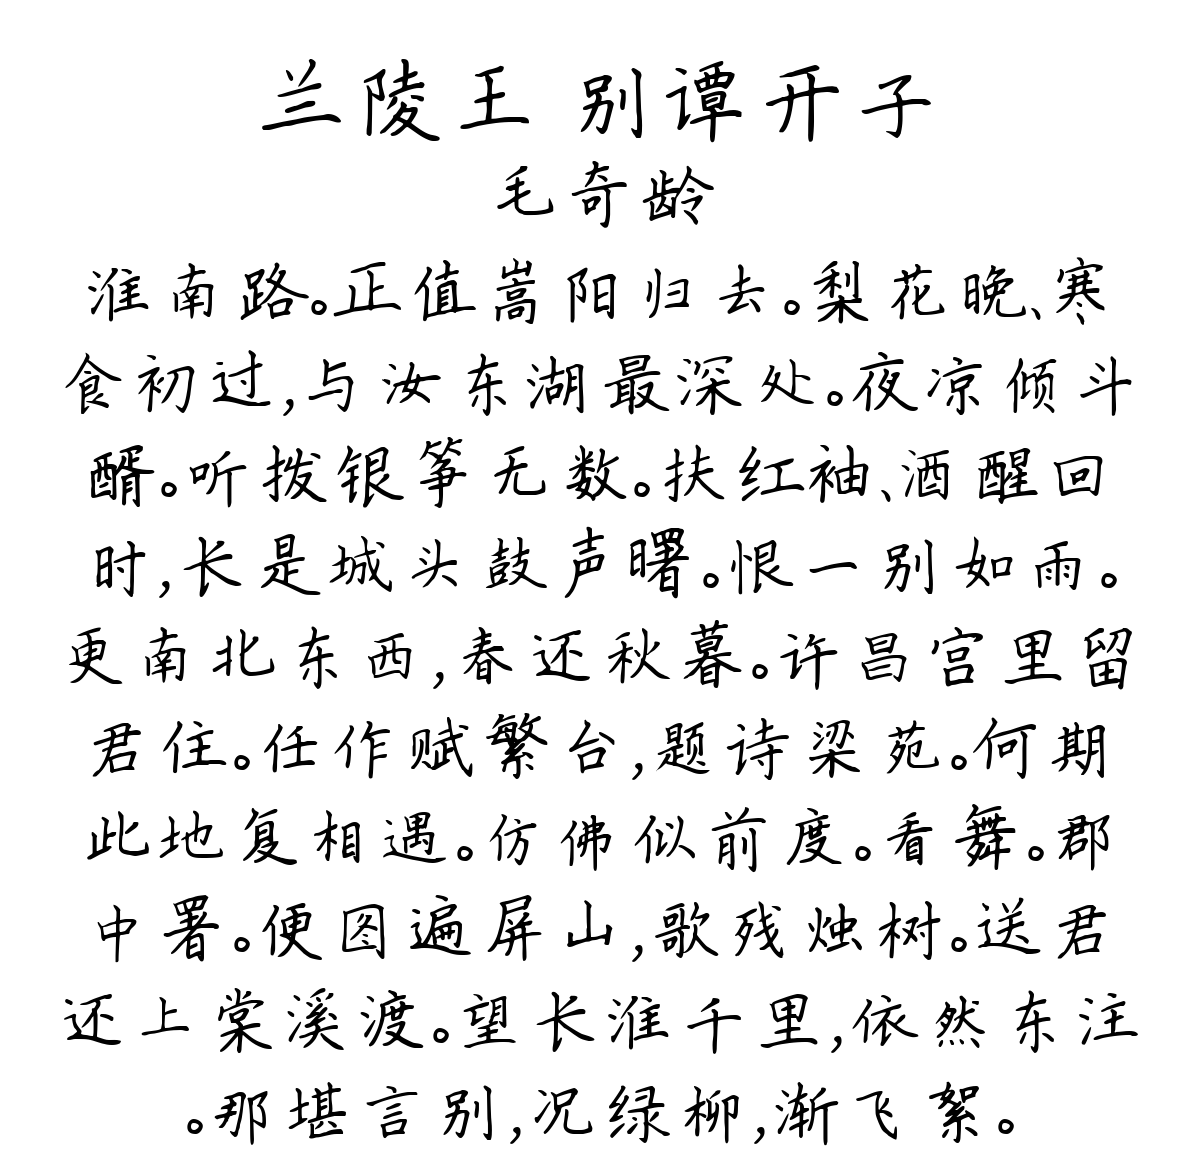 兰陵王 别谭开子
毛奇龄
淮南路。正值嵩阳归去。梨花晚、寒
食初过,与汝东湖最深处。夜凉倾斗
醑。听拨银筝无数。扶红袖、酒醒回
时,长是城头鼓声曙。恨一别如雨。
更南北东西,春还秋暮。许昌宫里留
君住。任作赋繁台,题诗梁苑。何期
此地复相遇。仿佛似前度。看舞。郡
中署。便图遍屏山,歌残烛树。送君
还上棠溪渡。望长淮千里,依然东注
。那堪言别,况绿柳,渐飞絮。